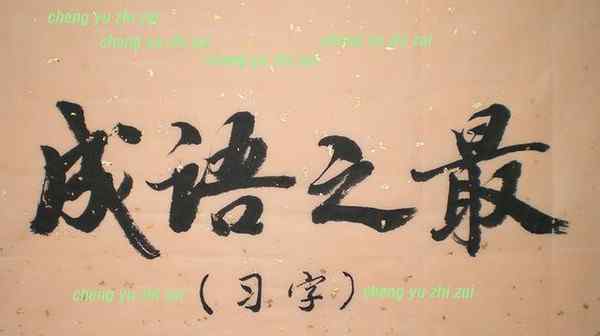 cheng yu zhi zui
cheng yu zhi zui cheng yu zhi zui
cheng yu zhi zui
成语之最
(习字)
cheng yu zhi zui cheng yu zhi zui